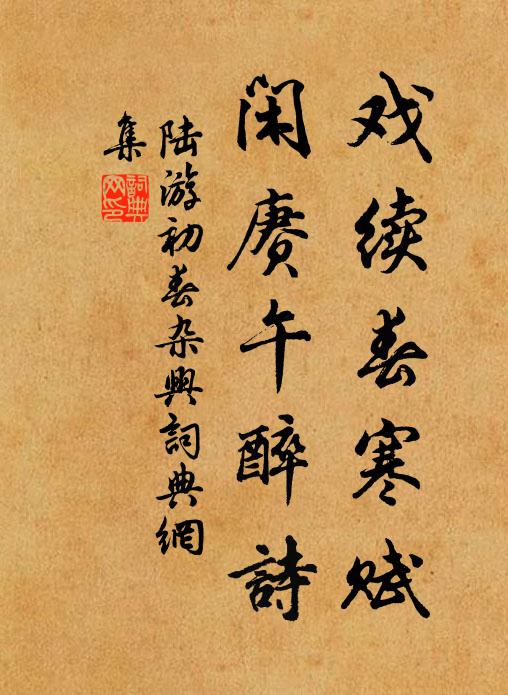 戏续春寒赋
闲赓午醉詩
陆游初春杂興詞典網
集
詞典
网印